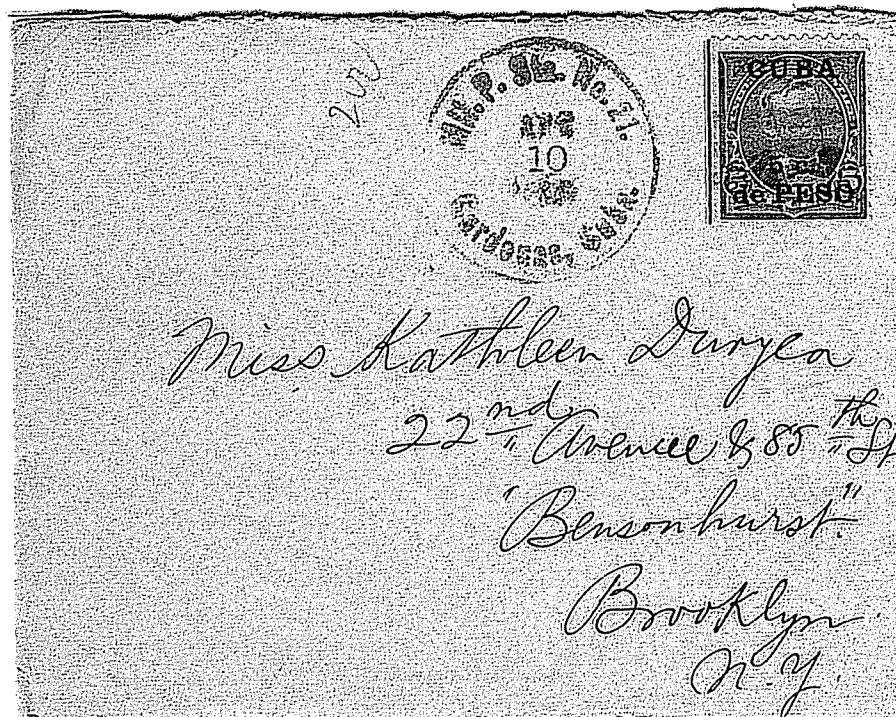 200
Mil. P. Sta. No. 21.
10
Cardenas, Cuba.
CUBA
5 c.
de PESO
Miss Kathleen Duryea
22nd Avenue & 85th St
"Bensonhurst"
Brooklyn
N.Y.